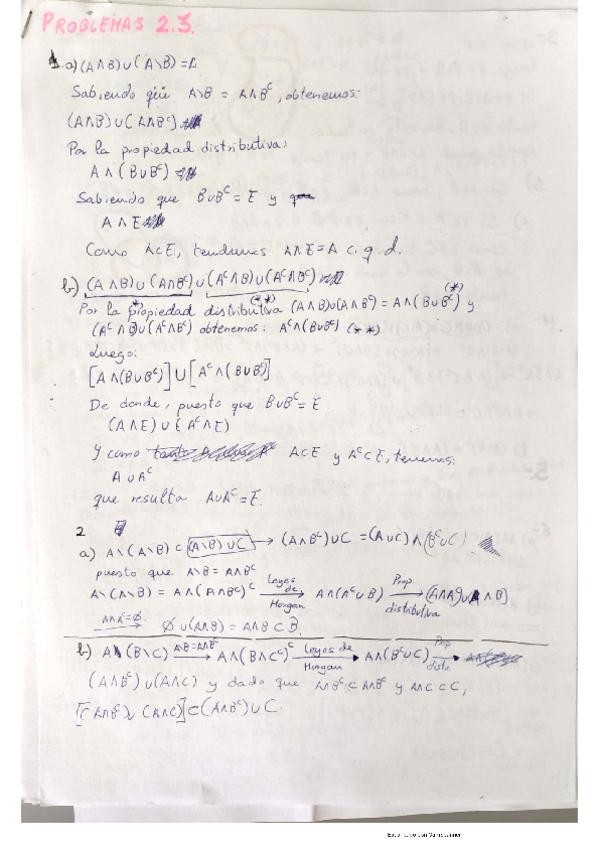 PROBLEMAS 2.3.
1 a) (A∧B)∪(A\B)=A
Sabiendo que A\B = A∧Bᶜ, obtenemos:
(A∧B)∪(A∧Bᶜ)
Por la propiedad distributiva:
A∧(B∪Bᶜ)
Sabiendo que B∪Bᶜ=E y
A∧E
Como A⊂E, tendremos A∧E=A c.q.d.
b) (A∧B)∪(A∧Bᶜ)∪(Aᶜ∧B)∪(Aᶜ∧Bᶜ)
Por la propiedad distributiva (A∧B)∪(A∧Bᶜ)=A∧(B∪Bᶜ) (*) y
(Aᶜ∧B)∪(Aᶜ∧Bᶜ) obtenemos: Aᶜ∧(B∪Bᶜ) (**)
Luego:
[A∧(B∪Bᶜ)]∪[Aᶜ∧(B∪Bᶜ)]
De donde, puesto que B∪Bᶜ=E
(A∧E)∪(Aᶜ∧E)
Y como A⊂E y Aᶜ⊂E, tenemos:
A∪Aᶜ
que resulta A∪Aᶜ=E.
2
a) A\(A\B)⊂(A\B)∪C → (A∧Bᶜ)∪C=(A∪C)∧(Bᶜ∪C)
puesto que A\B=A∧Bᶜ
A\(A\B)=A∧(A∧Bᶜ)ᶜ Leyes de Morgan → A∧(Aᶜ∪B) Prop distributiva → (A∧Aᶜ)∪(A∧B)
A∧Aᶜ=∅ → ∅∪(A∧B)=A∧B⊂B.
b) A\(B\C) A\B=A∧Bᶜ → A∧(B∧Cᶜ)ᶜ Leyes de Morgan → A∧(Bᶜ∪C) Prop distr. →
(A∧Bᶜ)∪(A∧C) y dado que A∧Bᶜ⊂A∧Bᶜ y A∧C⊂C,
[(A∧Bᶜ)∪(A∧C)]⊂(A∧Bᶜ)∪C.